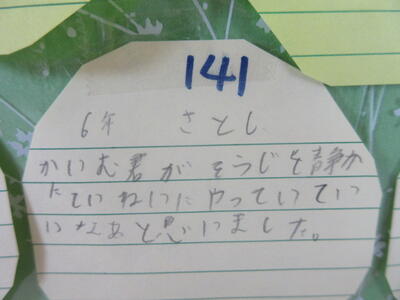 141
6年 さとし
かいむ君がそうじを静か
にていねいにやっていてい
いなあと思いました。